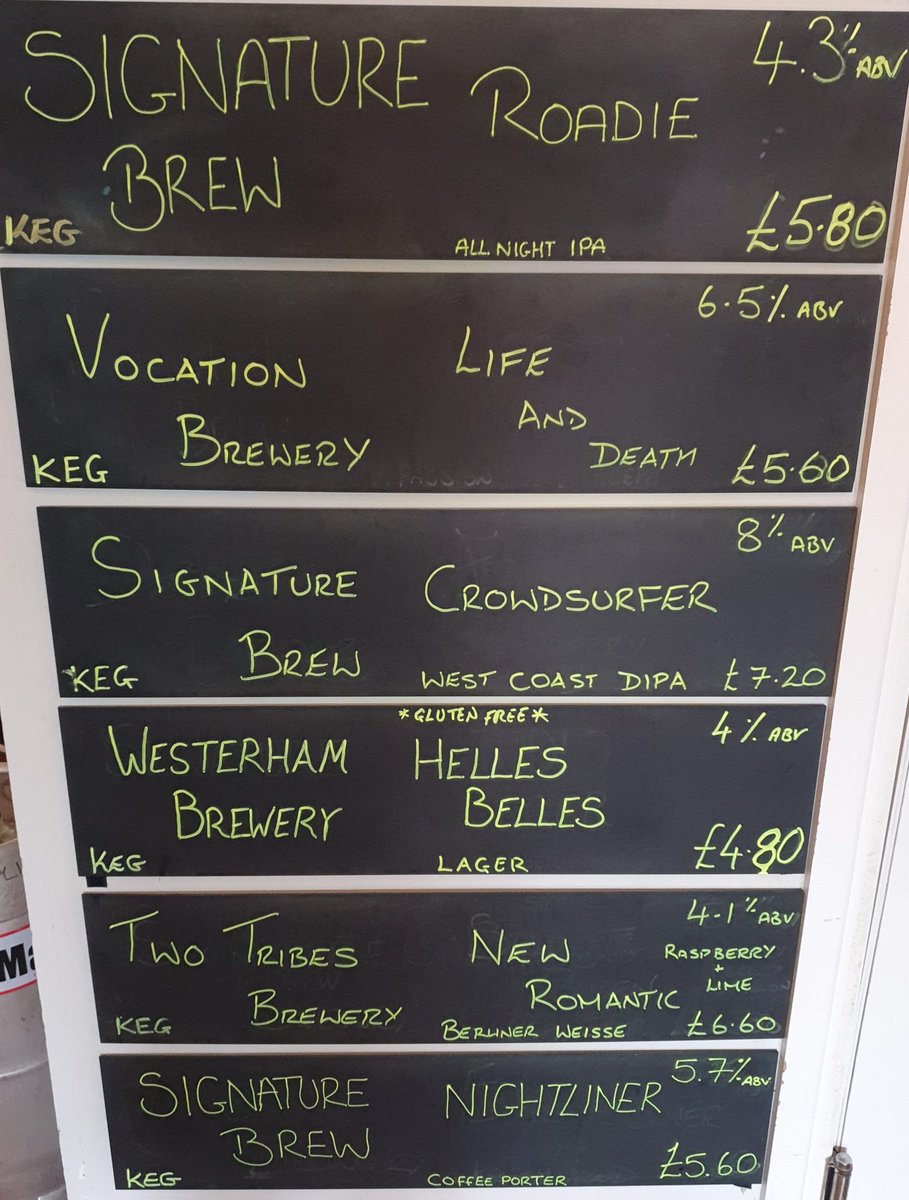 SIGNATURE BREW
ROADIE
4.3% ABV
KEG
ALL NIGHT IPA
£5.80
VOCATION BREWERY
LIFE AND DEATH
6.5% ABV
KEG
£5.60
SIGNATURE BREW
CROWDSURFER
8% ABV
KEG
WEST COAST DIPA
£7.20
*GLUTEN FREE*
WESTERHAM BREWERY
HELLES BELLES
4% ABV
KEG
LAGER
£4.80
TWO TRIBES BREWERY
NEW ROMANTIC
4.1% ABV
RASPBERRY + LIME
KEG
BERLINER WEISSE
£6.60
SIGNATURE BREW
NIGHTLINER
5.7% ABV
KEG
COFFEE PORTER
£5.60